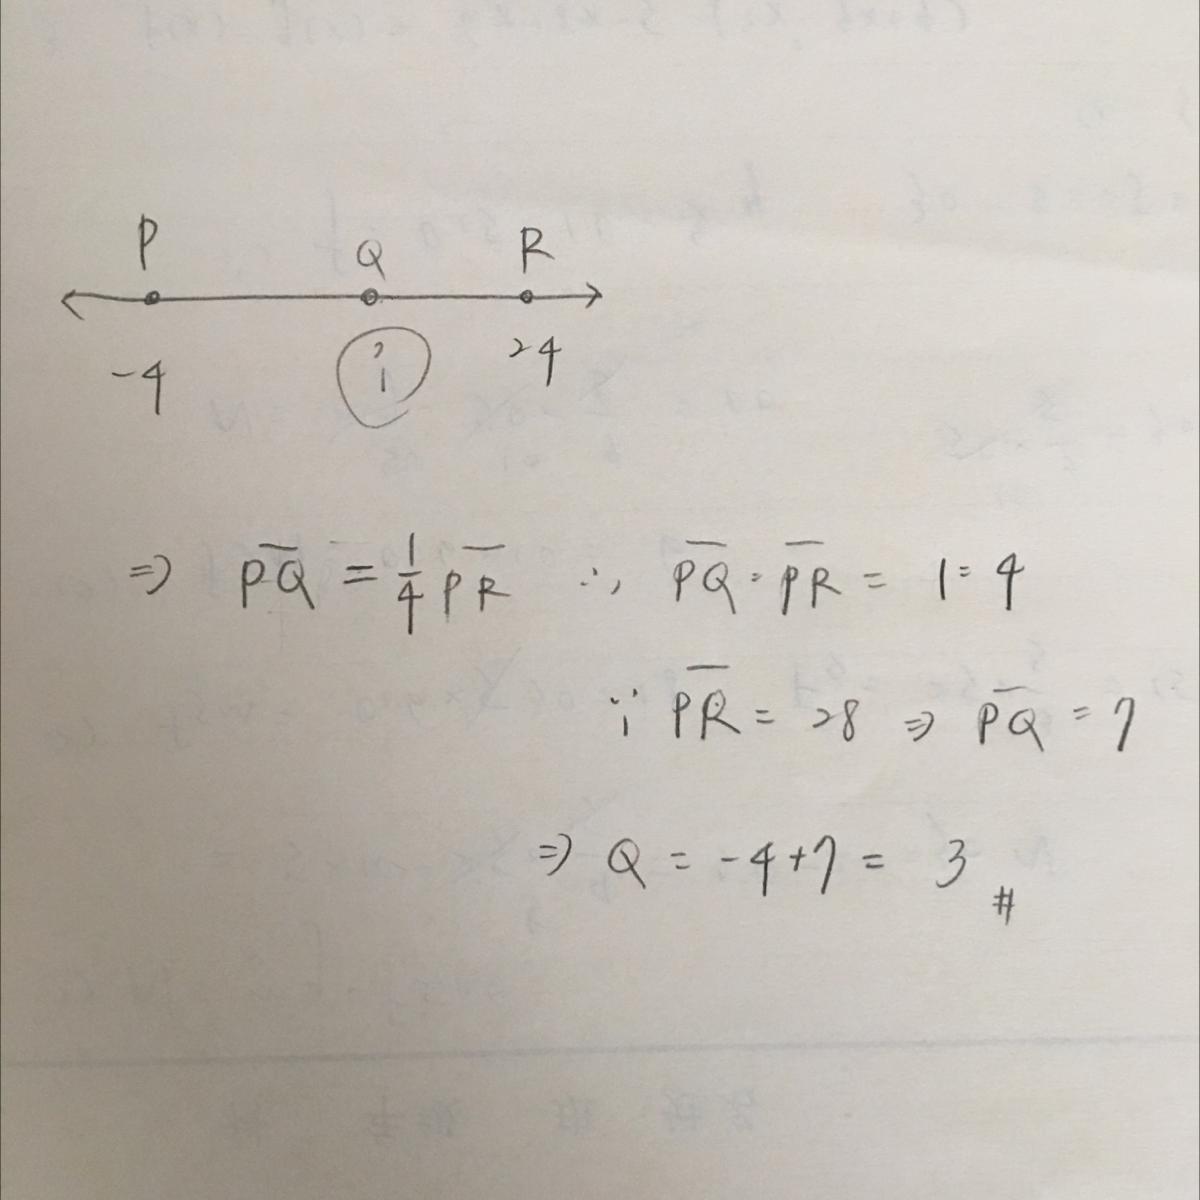 P Q R
-4 ? 24
⇒ PQ = 1/4 PR ∴ PQ : PR = 1 : 4
∵ PR = 28 ⇒ PQ = 7
⇒ Q = -4+7 = 3 #